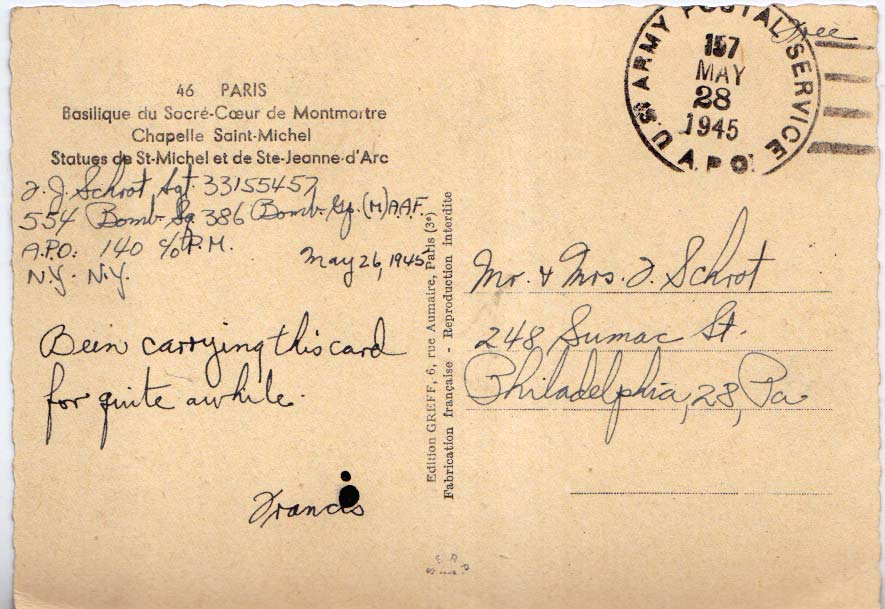 46 PARIS
Basilique du Sacré-Cœur de Montmartre
Chapelle Saint-Michel
Statues de St-Michel et de Ste-Jeanne-d'Arc
F. J. Schrot Sgt. 33155457
554 Bomb. Sq. 386 Bomb. Gp. (M) A.A.F.
A.P.O. 140 c/o P.M.
N.Y. N.Y.
May 26, 1945
Been carrying this card
for quite awhile.
Francis
Edition GREFF, 6, rue Aumaire, Paris (3e)
Fabrication française - Reproduction interdite
free
U.S. ARMY POSTAL SERVICE
157
MAY
28
1945
A.P.O.
Mr. & Mrs. F. Schrot
248 Sumac St.
Philadelphia, 28, Pa